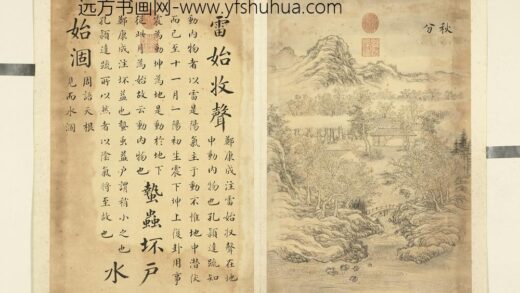 远方书画网--www.yfshuhua.com
秋
分
雷始收聲
鄭康成注雷始收聲在地
中動内物也孔穎達疏知
動内物者以雷是陽氣主于動不惟地中潜伏
而已至十一月一陽初生震下坤上復卦用事
震為動坤為地是動於地下
從此月為始故云動内物也
蟄蟲坏户
鄭康成注坏益也蟄蟲益户謂稍小之也
孔穎達疏所以然者以陰氣將至故也
水
始涸
周語天根
見而水涸